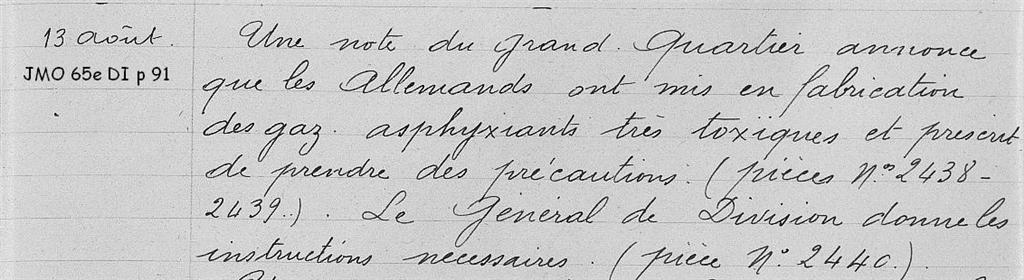 13 août.
JMO 65e DI p 91
Une note du Grand. Quartier annonce
que les Allemands ont mis en fabrication
des gaz. asphyxiants très toxiques et prescrit
de prendre des précautions. (pièces Nos 2438-
2439.). Le Général de Division donne les
instructions necessaires. (pièce N° 2440.)